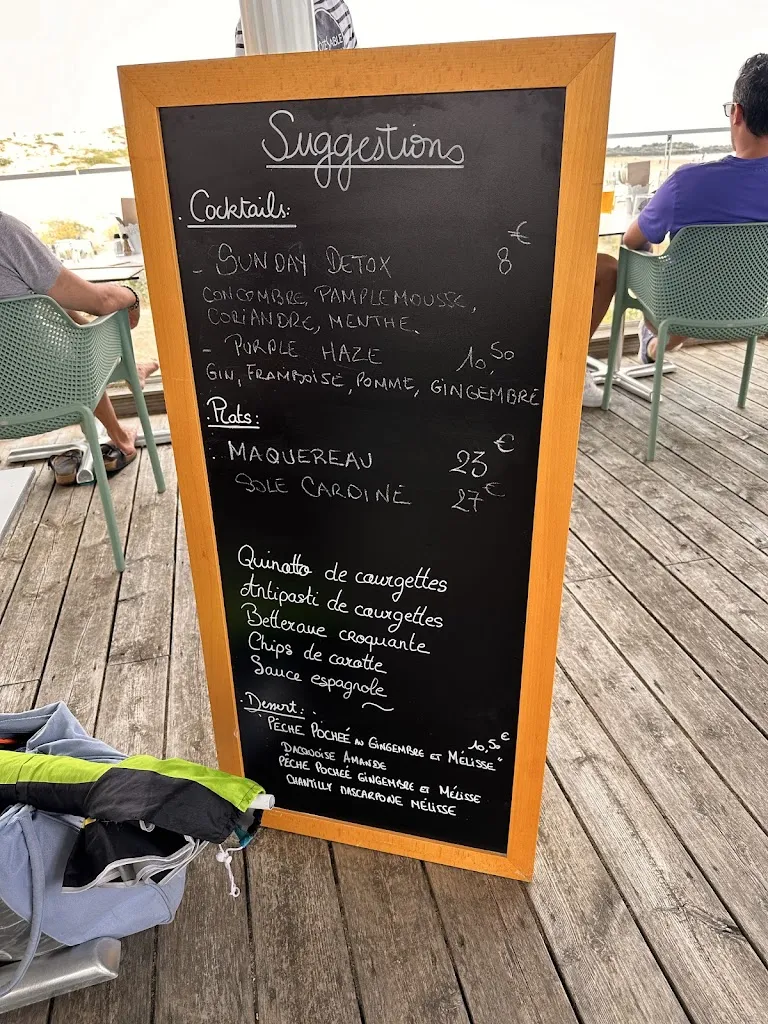 Suggestions
. Cocktails:
- SUNDAY DETOX 8€
CONCOMBRE, PAMPLEMOUSSE,
CORIANDRE, MENTHE.
- PURPLE HAZE 10,50
GIN, FRAMBOISE, POMME, GINGEMBRE
. Plats:
MAQUEREAU 23€
SOLE CARDINE 27€
Quinotto de courgettes
Antipasti de courgettes
Betterave croquante
Chips de carotte
Sauce espagnole
. Dessert:
"PÊCHE POCHEÉ AU GINGEMBRE ET MÉLISSE" 10,50€
DACQUOISE AMANDE
PÊCHE POCHEÉ GINGEMBRE ET MÉLISSE
CHANTILLY MASCARPONE MÉLISSE